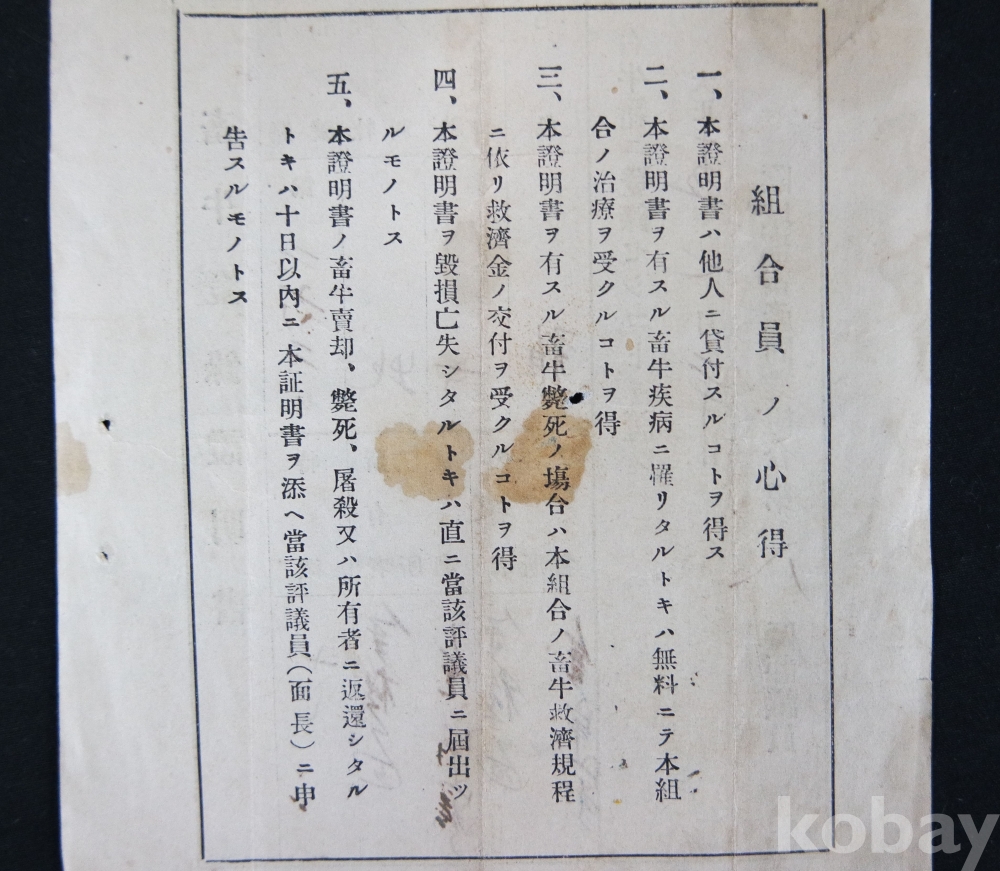 組合員ノ心得
一、本證明書ハ他人ニ貸付スルコトヲ得ス
二、本證明書ヲ有スル畜牛疾病ニ罹リタルトキハ無料ニテ本組
合ノ治療ヲ受クルコトヲ得
三、本證明書ヲ有スル畜牛斃死ノ塲合ハ本組合ノ畜牛救濟規程
ニ依リ救濟金ノ交付ヲ受クルコトヲ得
四、本證明書ヲ毀損亡失シタルトキハ直ニ當該評議員ニ屆出ツ
ルモノトス
五、本證明書ノ畜牛賣却、斃死、屠殺又ハ所有者ニ返還シタル
トキハ十日以内ニ本証明書ヲ添ヘ當該評議員(面長)ニ申
告スルモノトス
kobay